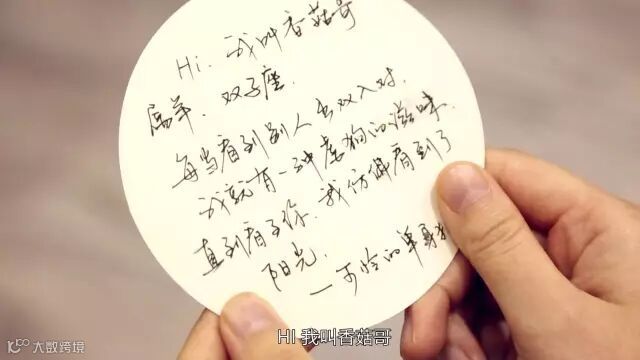 Hi. 我叫香菇哥
属羊. 双子座.
每当看到别人出双入对.
我就有一种虐狗的滋味.
直到看到你. 我仿佛看到了
阳光.
一可怜的单身狗
HI 我叫香菇哥
大数跨境